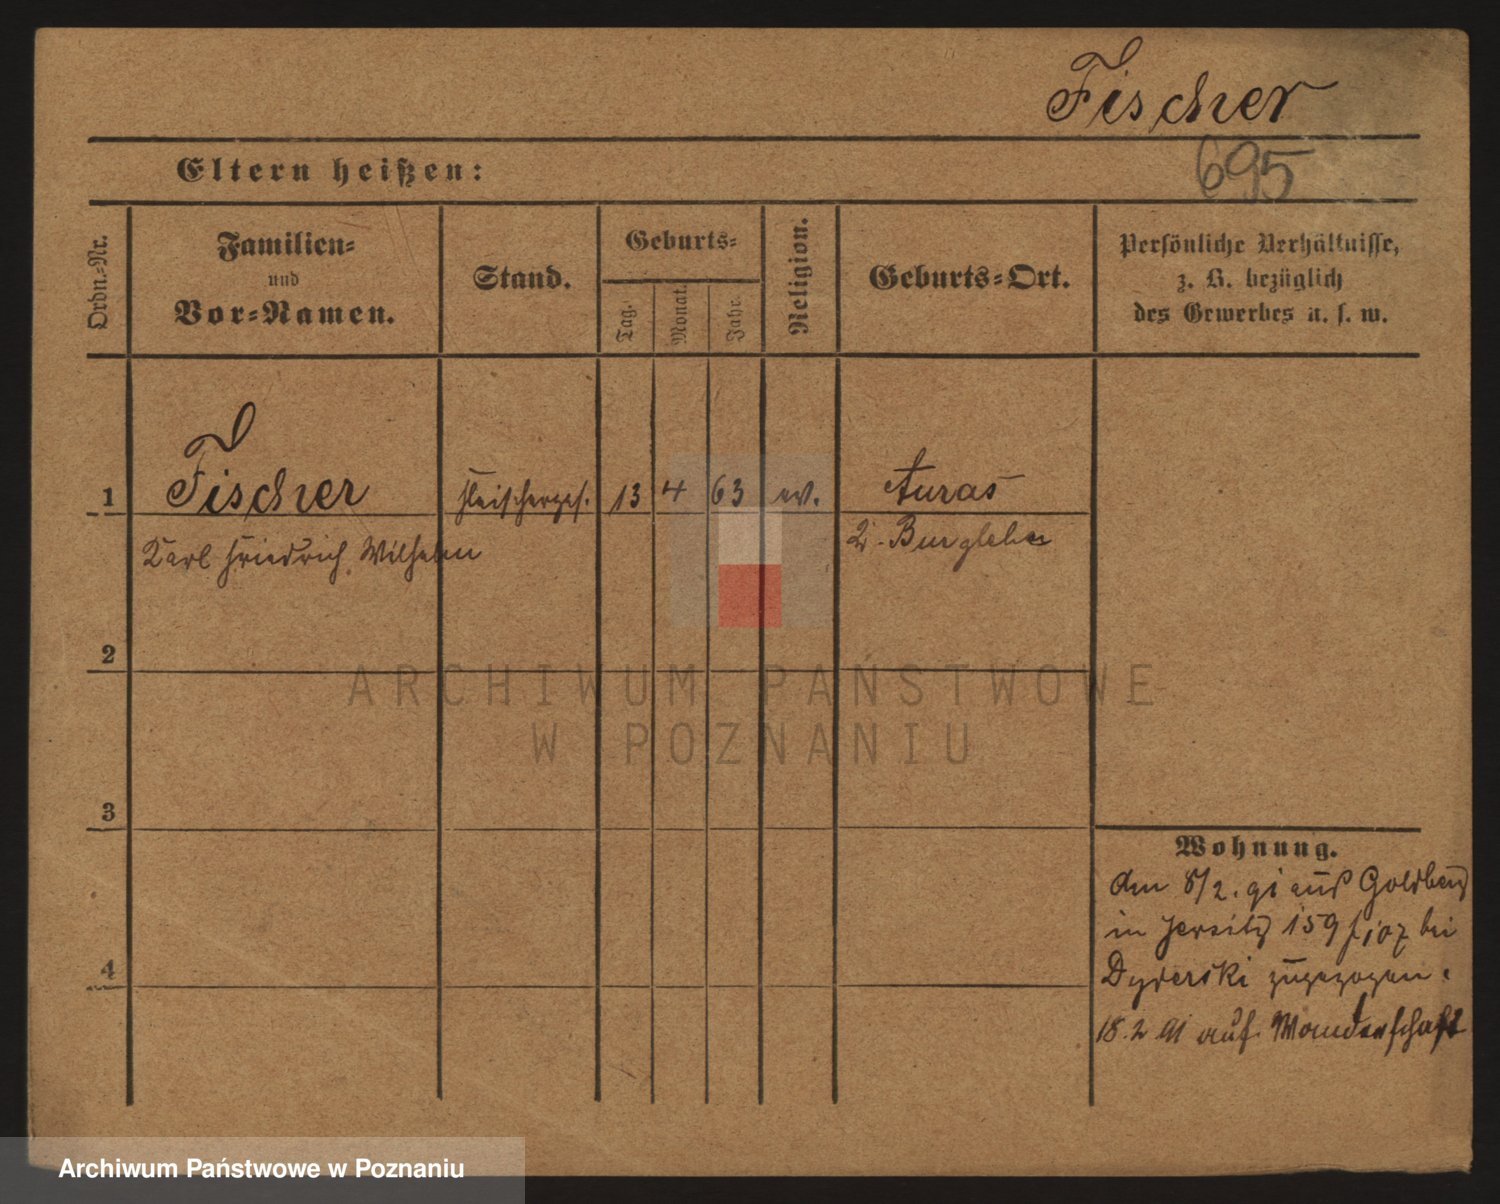 Fischer
695
Eltern heißen:
Ordn.-Nr.
Familien-
und
Vor-Namen.
Stand.
Geburts-
Tag.
Monat.
Jahr.
Religion.
Geburts-Ort.
Persönliche Verhältnisse,
z. B. bezüglich
des Gewerbes u. s. w.
1 Fischer Fleischerges. 13 4 63 ev. Auras
Karl Friedrich Wilhelm
2
3
4
Wohnung.
Am 8/2. 91 aus Goldberg
in Jersitz 159 bei
Dyderski zugezogen.
18.2 91 auf Wanderschaft
ARCHIWUM PAŃSTWOWE
W POZNANIU
Archiwum Państwowe w Poznaniu